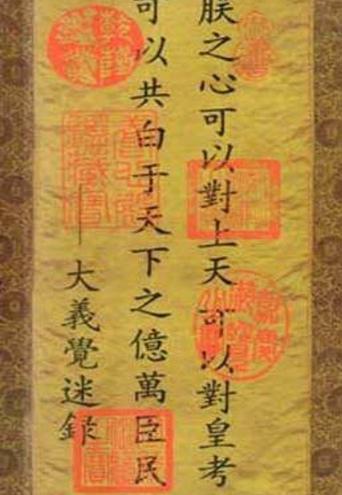 朕之心可以對上天可以對皇考
可以共白于天下之億萬臣民
——大義覺迷録